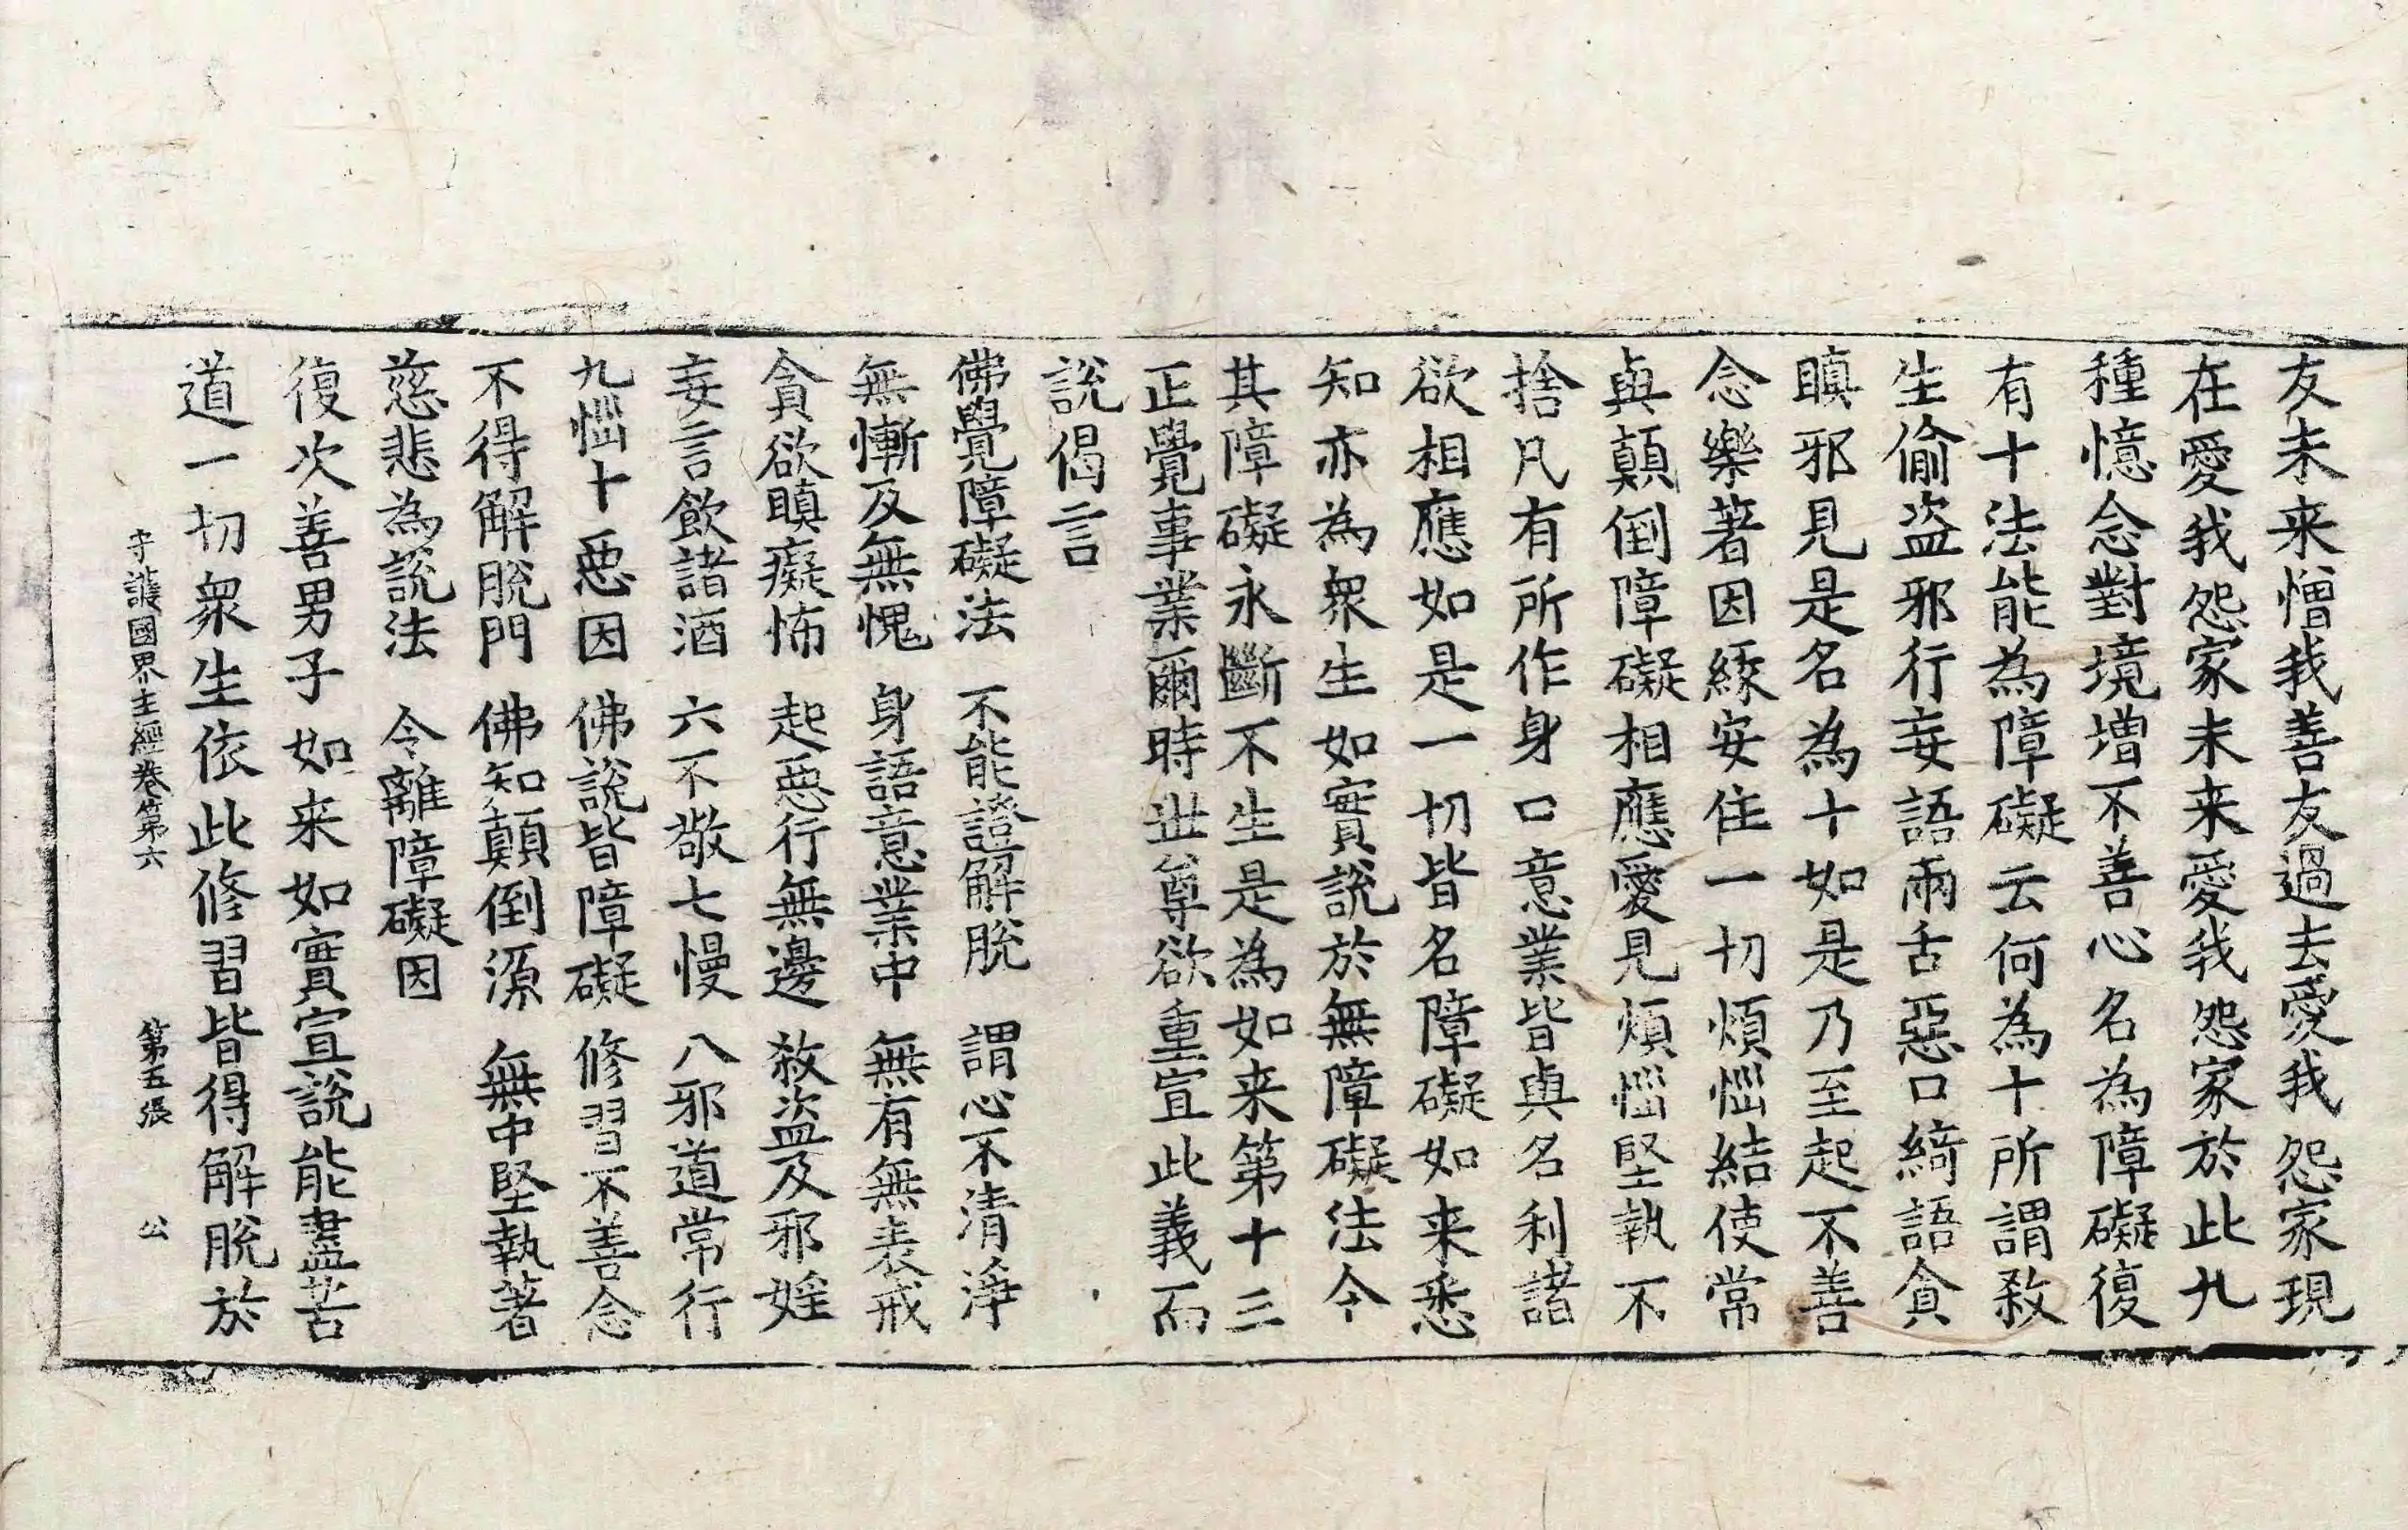 友未来憎我善友過去愛我怨家現
在愛我怨家未来愛我怨家於此九
種憶念對境增不善心名為障礙復
有十法能為障礙云何為十所謂殺
生偷盜邪行妄語兩舌惡口綺語貪
瞋邪見是名為十如是乃至起不善
念樂著因緣安住一切煩惱結使常
與顛倒障礙相應愛見煩惱堅執不
捨凡有所作身口意業皆與名利諸
欲相應如是一切皆名障礙如来悉
知亦為衆生如實說於無障礙法令
其障礙永斷不生是為如来第十三
正覺事業爾時世尊欲重宣此義而
說偈言
佛覺障礙法 不能證解脫 謂心不清淨
無慚及無愧 身語意業中 無有無表戒
貪欲瞋癡怖 起惡行無邊 殺盜及邪婬
妄言飲諸酒 六不敬七慢 八邪道常行
九惱十惡因 佛說皆障礙 修習不善念
不得解脫門 佛知顛倒源 無中堅執著
慈悲為說法 令離障礙因
復次善男子如来如實宣說能盡苦
道一切衆生依此修習皆得解脫於
守護國界主經卷第六 第五張 公